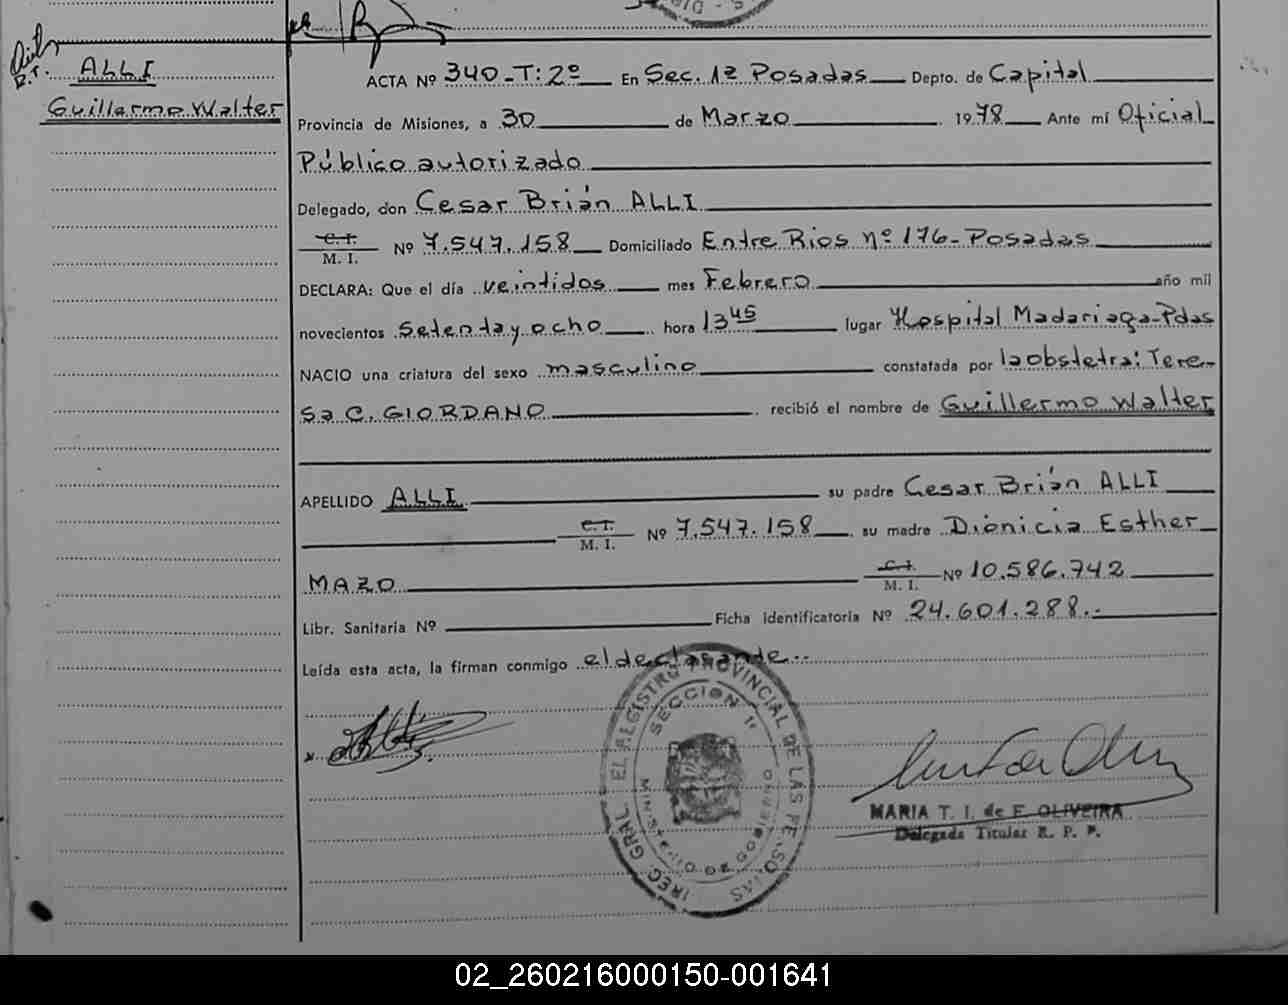 ALLI
R.T.
Guillermo Walter
ACTA Nº 340-T: 2º En Sec. 1ª Posadas Depto. de Capital
Provincia de Misiones, a 30 de Marzo 1978 Ante mí Oficial
Público autorizado
Delegado, don Cesar Brián ALLI
C. I.
M. I. Nº 7.547.158 Domiciliado Entre Rios nº 176-Posadas
DECLARA: Que el día veintidos mes Febrero año mil
novecientos Setenta y ocho hora 13 45 lugar Hospital Madariaga-Pdas
NACIO una criatura del sexo masculino constatada por la obstetra: Tere-
sa C. GIORDANO recibió el nombre de Guillermo Walter
APELLIDO ALLI su padre Cesar Brián ALLI
C. I.
M. I. Nº 7.547.158 su madre Dionicia Esther
MAZO C. I.
M. I. Nº 10.586.742
Libr. Sanitaria Nº Ficha identificatoria Nº 24.601.288.-
Leída esta acta, la firman conmigo el declarante.-
REGISTRO PROVINCIAL DE LAS PERSONAS
SECCION 1ª
MINISTERIO DE GOBIERNO
MARIA T. I. de F. OLIVEIRA
Delegada Titular R. P. P.
02_260216000150-001641